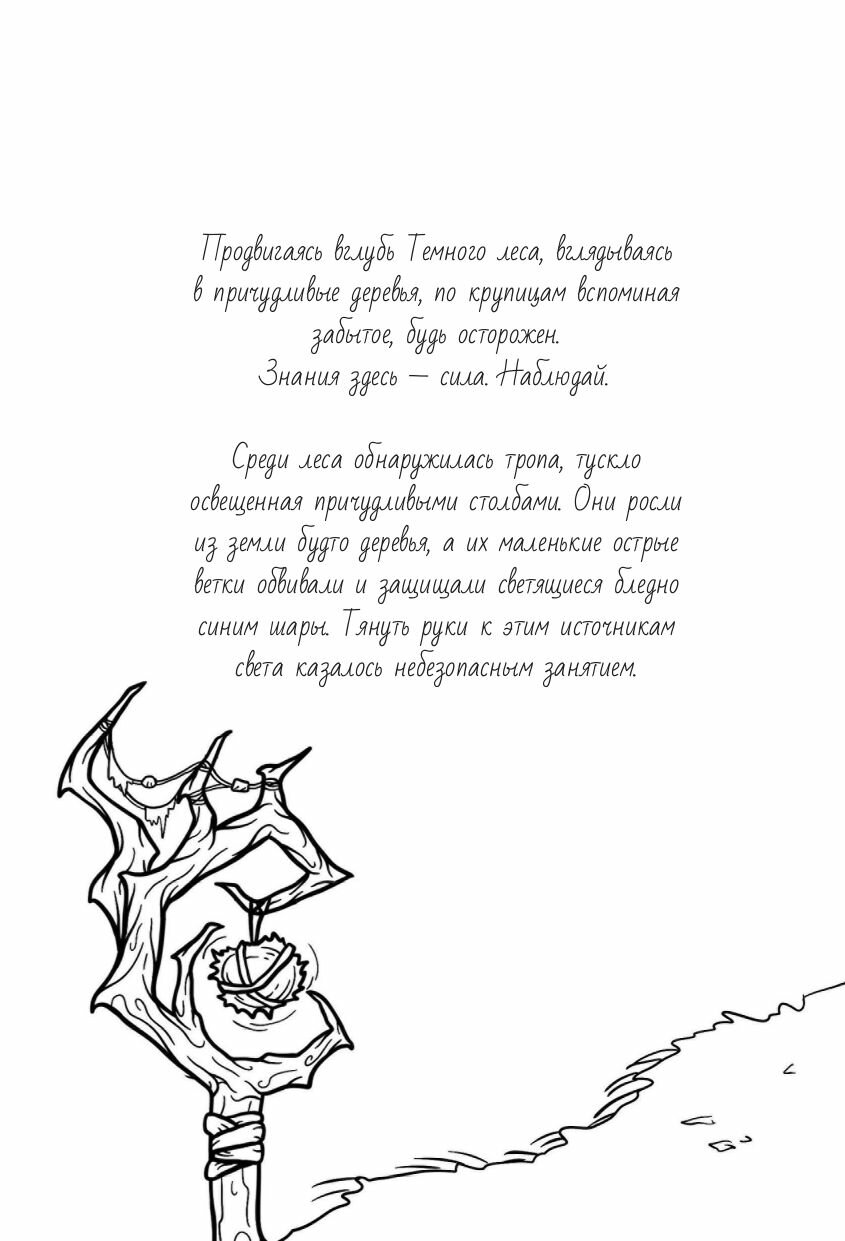 Продвигаясь вглубь Темного леса, вглядываясь
в причудливые деревья, по крупицам вспоминая
забытое, будь осторожен.
Знания здесь — сила. Наблюдай.
Среди леса обнаружилась тропа, тускло
освещенная причудливыми столбами. Они росли
из земли будто деревья, а их маленькие острые
ветки обвивали и защищали светящиеся бледно
синим шары. Тянуть руки к этим источникам
света казалось небезопасным занятием.